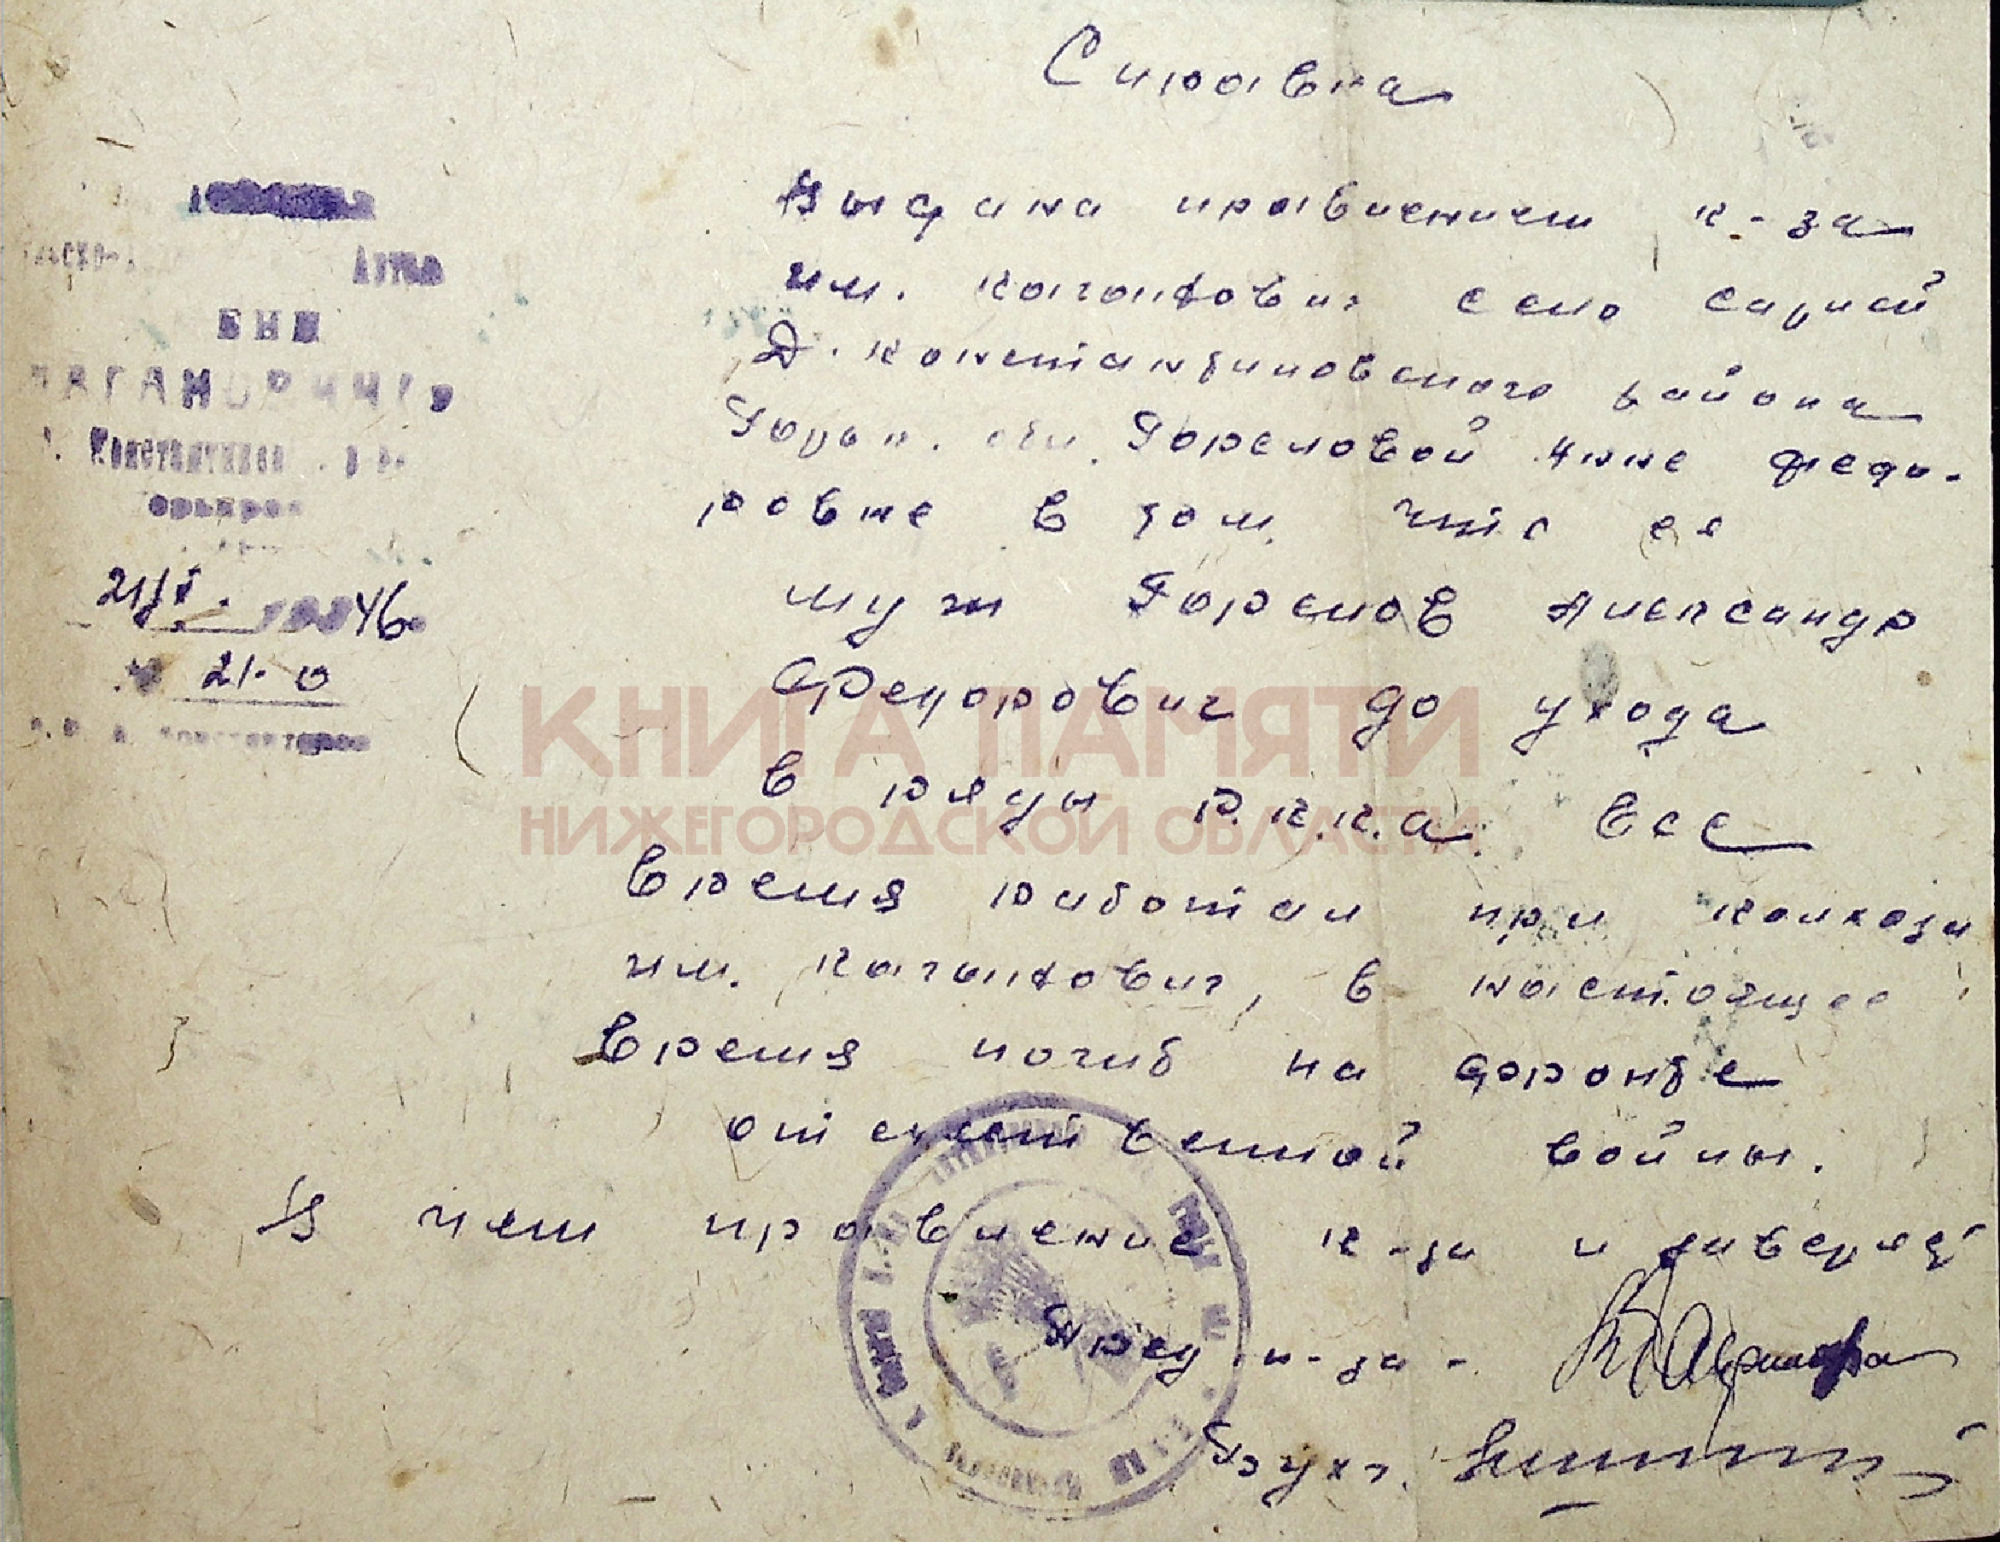 Справка
Выдана правлением к-за
им. Каганович село Сарлей
Д. Константиновского района
Горьк. обл. Гореловой Анне Федо-
ровне в том, что ее
муж Горелов Александр
Федорович до ухода
в ряды Р.К.К.А. все
время работал при колхози
им. Каганович, в настоящее
время погиб на фронте
отечественной войны.
В чем правление к-за и заверяет
Пред. к-за -
Бухг.
Константинов
21/V. 1946
№ 21-0
КНИГА ПАМЯТИ
НИЖЕГОРОДСКОЙ ОБЛАСТИ